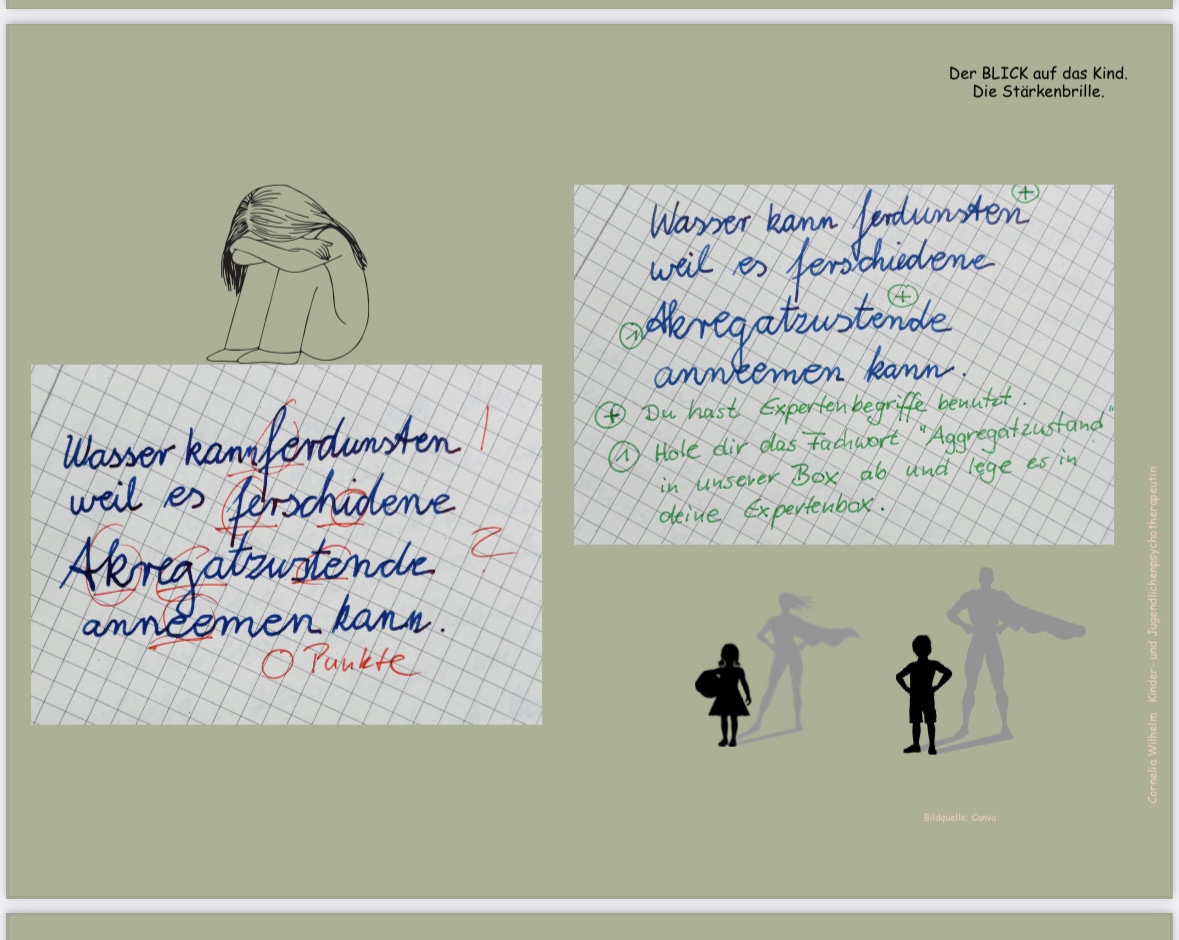 Der BLICK auf das Kind.
Die Stärkenbrille.
Wasser kann ferdunsten |
weil es ferschidene
Akregatzustende 2
anneemen kann.
0 Punkte
+
Wasser kann ferdunsten
weil es ferschiedene
+
1 Akregatzustende
anneemen kann.
+ Du hast Expertenbegriffe benutzt.
1 Hole dir das Fachwort "Aggregatzustand"
in unserer Box ab und lege es in
deine Expertenbox.
Cornelia Wilhelm Kinder- und Jugendlichenpsychotherapeutin
Bildquelle: Canva